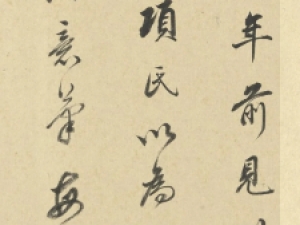 年前見
項氏以為
意筆每